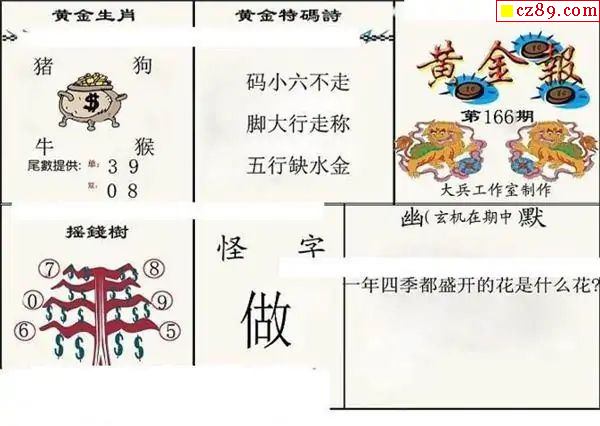 cz89.com
黄金生肖
猪 狗
$
牛 猴
尾數提供: 单: 3 9
双: 0 8
黄金特碼詩
码小六不走
脚大行走称
五行缺水金
黄金報
第166期
大兵工作室制作
摇錢樹
⑦ ⑧
⓪ ⑨
⑥ ⑤
$ $ $ $ $ $ $ $
怪 字
做
幽(玄机在期中)默
一年四季都盛开的花是什么花?